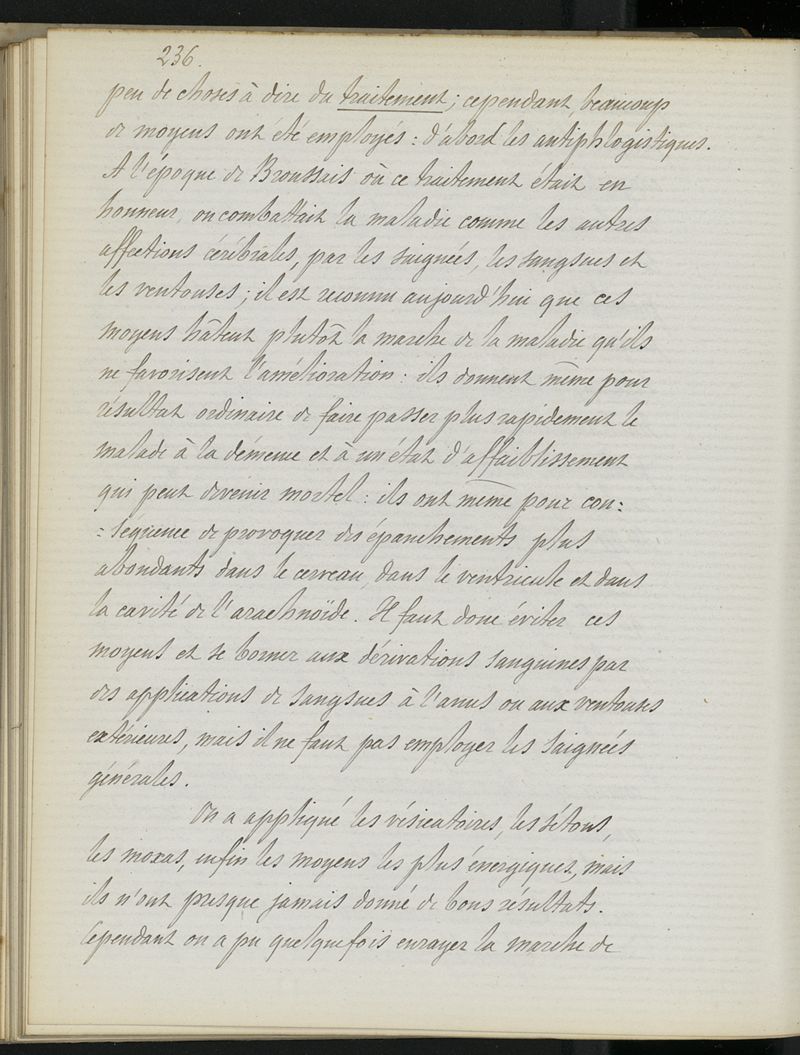 236.
peu de choses à dire du traitement ; cependant, beaucoup
de moyens ont été employés : d'abord les antiphlogistiques.
A l'époque de Broussais où ce traitement était en
honneur, on combattait la maladie comme les autres
affections cérébrales, par les saignées, les sangsues et
les ventouses ; il est reconnu aujourd'hui que ces
moyens hâtent plutôt la marche de la maladie qu'ils
ne favorisent l'amélioration : ils donnent même pour
résultat ordinaire de faire passer plus rapidement le
malade à la démence et à un état d'affaiblissement
qui peut devenir mortel : ils ont même pour con=
=séquence de provoquer des épanchements plus
abondants dans le cerveau, dans le ventricule et dans
la cavité de l'arachnoïde. Il faut donc éviter ces
moyens et se borner aux dérivations sanguines par
des applications de sangsues à l'anus ou aux ventouses
extérieures, mais il ne faut pas employer les saignées
générales.
On a appliqué les vésicatoires, les sétons,
les moxas, enfin les moyens les plus énergiques, mais
ils n'ont presque jamais donné de bons résultats.
Cependant on a pu quelquefois enrayer la marche de